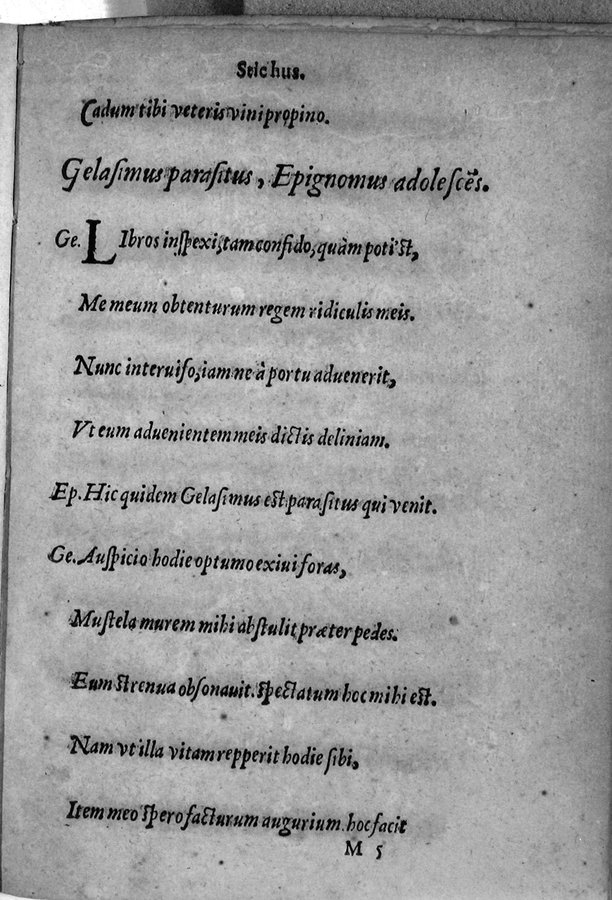 Stichus.
Cadum tibi veteris vini propino.
Gelasimus parasitus, Epignomus adolescēs.
Ge. LIbros inspexi, tam confido, quàm poti'st,
Me meum obtenturum regem ridiculis meis.
Nunc interuiso, iamne à portu aduenerit,
Vt eum aduenientem meis dictis deliniam.
Ep. Hic quidem Gelasimus est parasitus qui venit.
Ge. Auspicio hodie optumo exiui foras,
Mustela murem mihi abstulit præter pedes.
Eum strenua obsonauit. spectatum hoc mihi est.
Nam vt illa vitam repperit hodie sibi,
Item meo spero facturum augurium. hoc facit
M 5